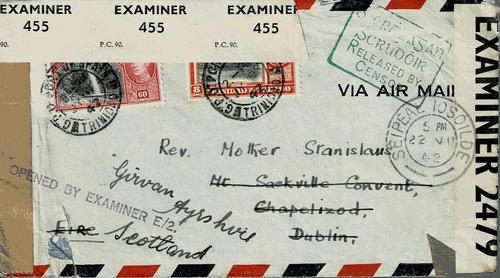 EXAMINER EXAMINER EXAMINER
455 455 455
90. P.C. 90. P.C. 90.
RELEASED BY
CENSOR
VIA AIR MAIL
60
8
TRINIDAD
TRINIDAD
5 PM
22 VII
42
EXAMINER 2479
Rev. Mother Stanislaus,
Mt. Sackville Convent,
Chapelizod,
Dublin,
EIRE
Girvan
Ayrshire
Scotland
OPENED BY EXAMINER E/2.